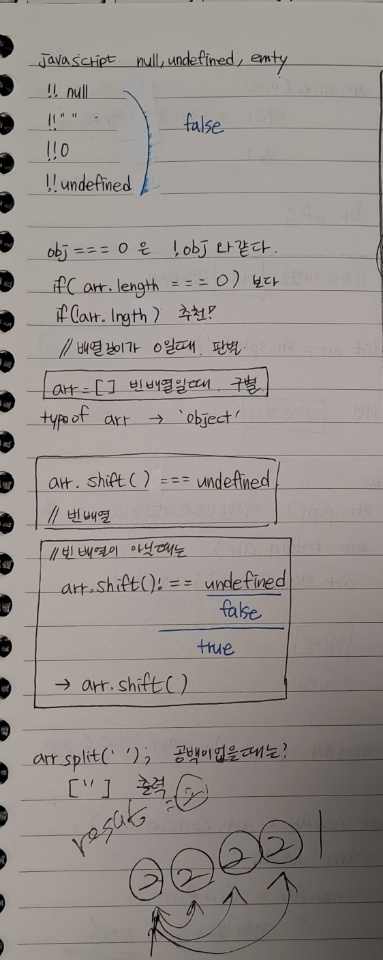 javascript null, undefined, emty
!! null
!!" "
!!0
!!undefined
false
obj === 0 은 !obj 와같다.
if( arr.length === 0) 보다
if(arr.lngth) 추천?
//배열길이가 0일때. 판별
arr = [] 빈배열일때. 구별
typeof arr → 'object'
arr. shift() === undefined
// 빈배열
//빈 배열이 아닛때는
arr.shift()! == undefined
false
true
→ arr.shift()
arr split(' '); 공백이없을때는?
[''] 출력
result = 2
2 2 2 2